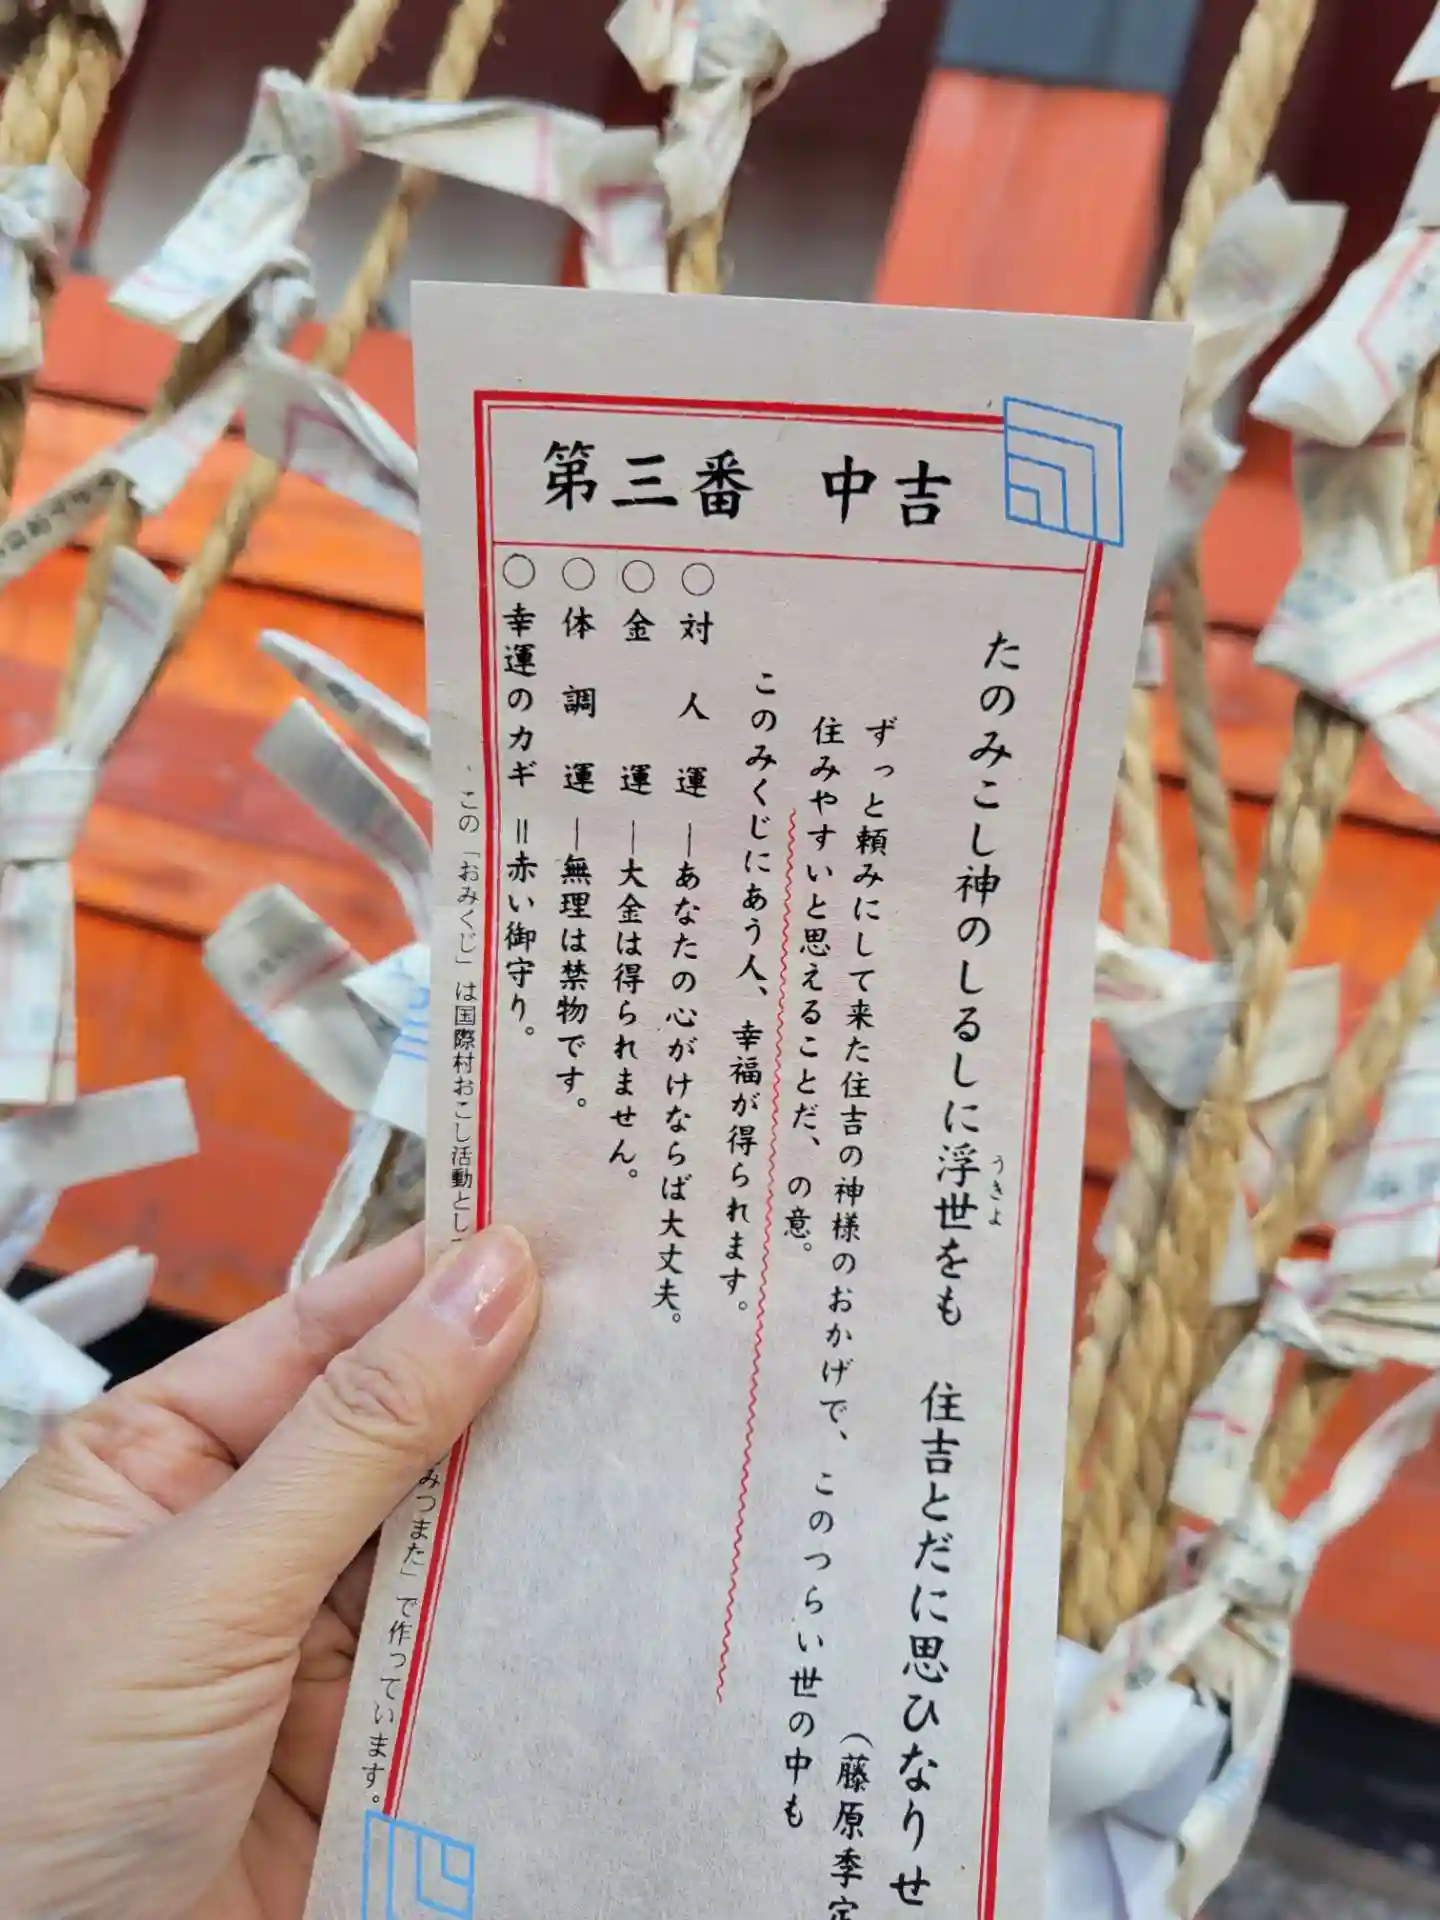 第三番 中吉
たのみこし神のしるしに浮世をも 住吉とだに思ひなりせ
うきよ
(藤原季定
ずっと頼みにして来た住吉の神様のおかげで、このつらい世の中も
住みやすいと思えることだ、の意。
このみくじにあう人、幸福が得られます。
○対人運―あなたの心がけならば大丈夫。
○金運―大金は得られません。
○体調運―無理は禁物です。
○幸運のカギ=赤い御守り。
この「おみくじ」は国際村おこし活動とし
みつまた」で作っています。